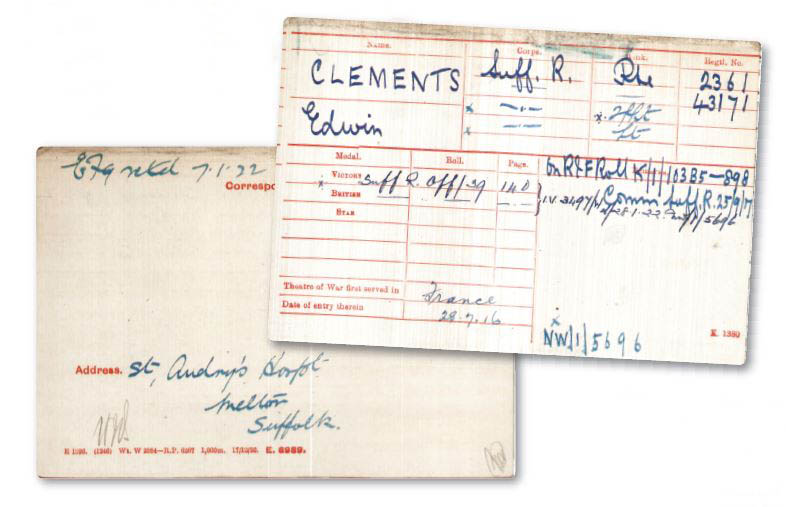 Name. Corps. Rank. Regtl. No.
CLEMENTS Suff. R. Pte 2361
43171
Edwin x —"— x. 2/Lt
x —"— Lt
Medal. Roll. Page. On R&F Roll K/1/103B5-898
x VICTORY Suff R. Off/39 140 Comm Suff. R. 25/9/17
BRITISH —"— —"— I.V. 3497/ 28.1.22. NW/1/5696
STAR
Theatre of War first served in France
Date of entry therein 28.7.16
x
NW/1/5696 K. 1380
EF9 retd 7.1.22
Correspo
Address. St, Audry's Hospt
Melton
Suffolk.
(1246) Wt. W 1,000m. 17/12/20. K. 6989.